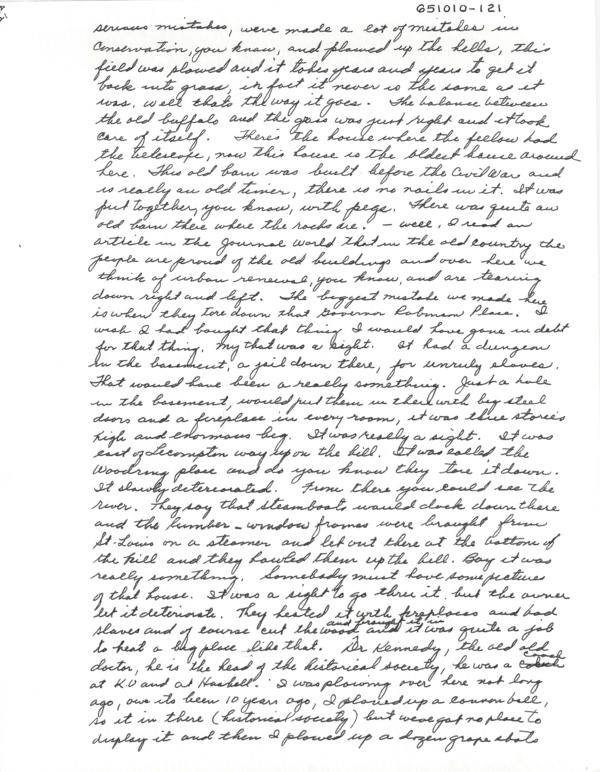 G51010-121
serious mistakes, weve made a lot of mistakes in
Conservation, you know, and plowed up the hells, this
field was plowed and it takes years and years to get it
back into grass, in fact it never is the same as it
was, well thats the way it goes. The balance between
the old buffalo and the grass was just right and it took
care of itself. There's the house where the fellow had
the telescope, now this house is the oldest house around
here. This old barn was built before the Civil War and
is really an old timer, there is no nails in it. It was
put together, you know, with pegs. There was quite an
old barn there where the rocks are. - well, I read an
article in the Journal World that in the old country the
people are proud of the old buildings and over here we
think of urban renewal, you know, and are tearing
down right and left. The biggest mistake we made here
is when they tore down that Governor Robinson Place. I
wish I had bought that thing I would have gone in debt
for that thing, my that was a sight. It had a dungeon
in the basement, a jail down there, for unruly slaves.
That would have been a really something. Just a hole
in the basement, would put them in there with big steel
doors and a fireplace in every room, it was three stories
high and enormous big. It was really a sight. It was
east of Lecompton way up on the hill. It was called the
Woodring place and do you know they tore it down.
It slowly deteriorated. From there you could see the
river. They say that steamboats would dock down there
and the lumber - window frames were brought from
St. Louis on a steamer and let out there at the bottom of
the hill and they hawled them up the hill. Boy it was
really something. Somebody must have some pictures
of that house. It was a sight to go thru it, but the owner
let it deteriorate. They heated it with fireplaces and had
slaves and of course cut the wood and brought it in and it was quite a job
to heat a big place like that. Dr Kennedy, the old old
doctor, he is the head of the historical society, he was a coach
at K.U and at Haskell. I was plowing over here not long
ago, owe its been 10 years ago, I plowed up a cannon ball,
so it in there (historical society) but weve got no place to
display it and then I plowed up a dozen grape shots